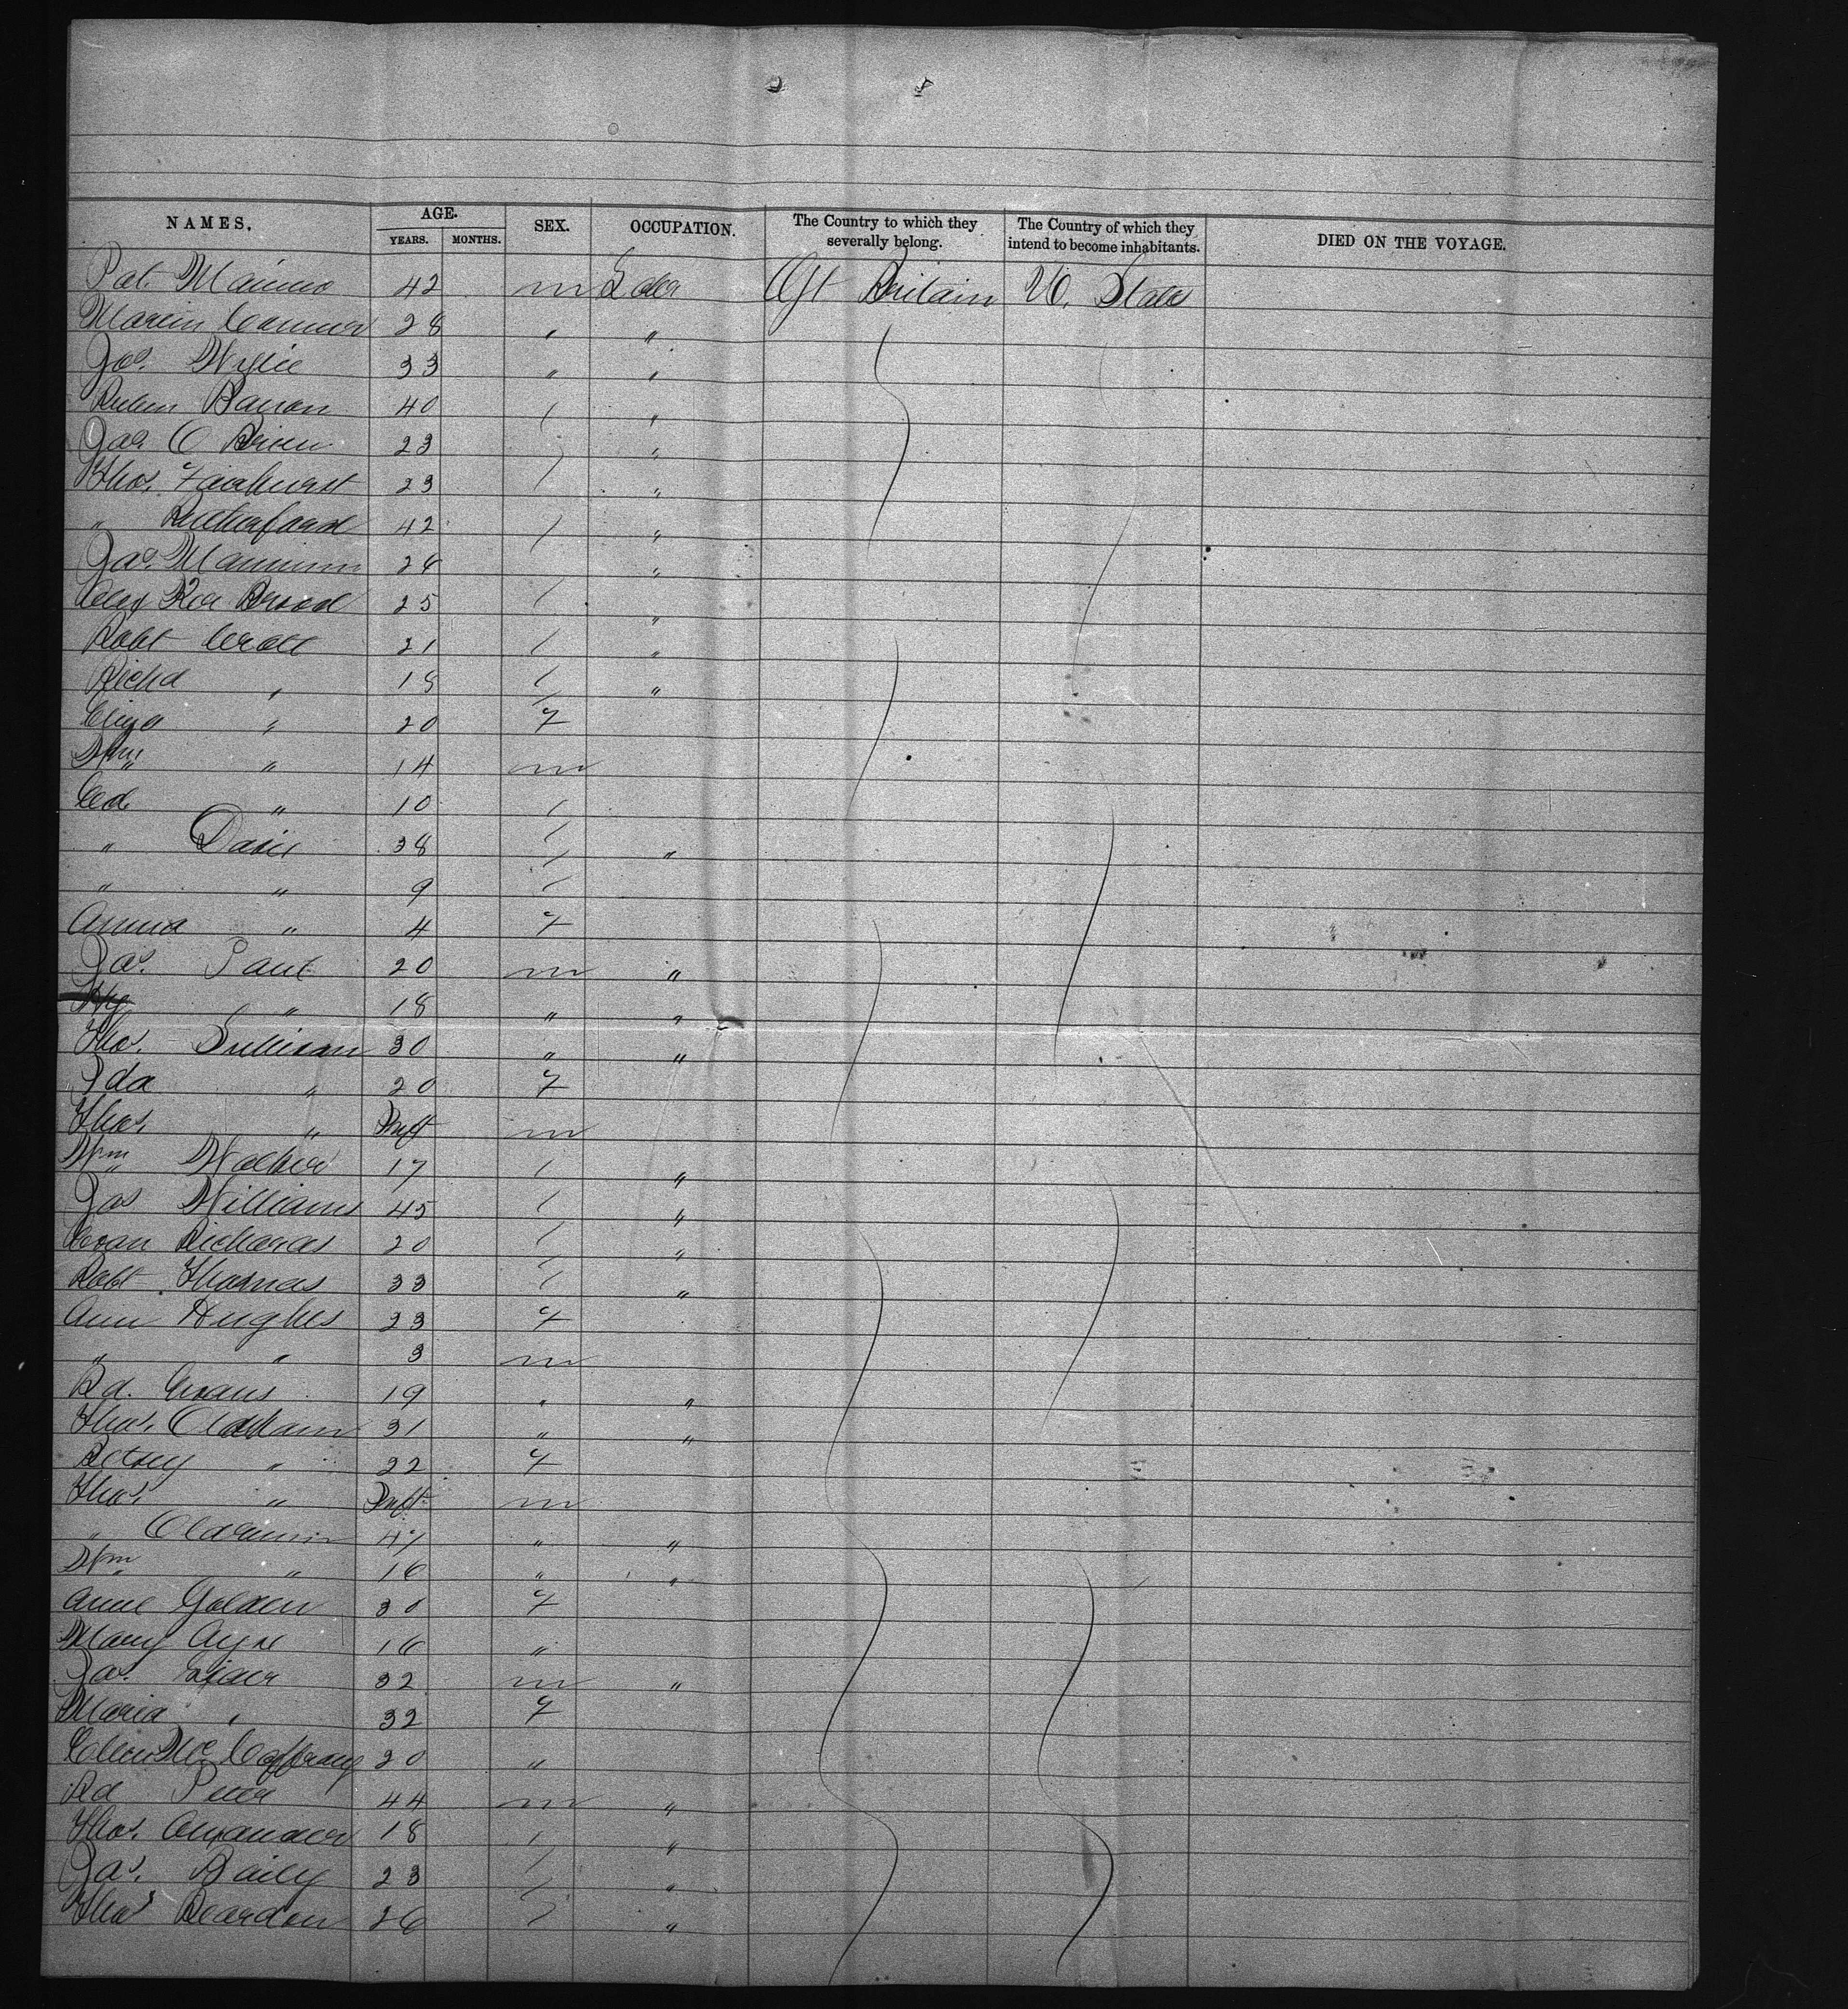 NAMES. AGE. SEX. OCCUPATION. The Country to which they severally belong. The Country of which they intend to become inhabitants. DIED ON THE VOYAGE.
YEARS. MONTHS.
Pat. 42 m Labr Gt Britain U. States
Martin Connor 28 " "
Jos. Wylie 33 " "
Barron 40 "
Jas O Brien 23 "
Thos. Fairhurst 23 "
" Rutherfoord 42 "
Jas. Mannion 28 "
Alex Broad 25 "
Robt Croll 21 "
Richd " 18 "
Eliza " 20 F
Wm " 14 m
Ed. " 10
" Davis 38 "
" " 9
Anna " 4 F
Jas. Paul 20 m "
Hy " 18 " "
Thos. Sullivan 30 " "
Ida " 20 F
Thos. " Inft m
Wm Walker 17 "
Jos Williams 45 "
Evan Richards 20 "
Robt Thomas 33 "
Ann Hughes 23 F
" " 3 m
Rd. Evans 19 " "
Thos. Oldham 31 " "
Betsey " 22 F
Thos. " Inft m
" 47 " "
Wm " 16 " "
Anne Golden 30 F
Mary Ayre 16 "
Jas. 32 m "
Maria " 32 F
Ellen Mc Caffrey 20 "
Rd Peter 44 m "
Thos. Alexander 18 "
Jas. Baily 23 "
Thos Reardon 26 "